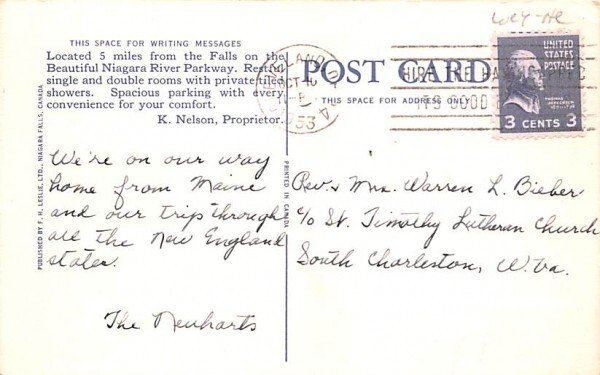 THIS SPACE FOR WRITING MESSAGES
Located 5 miles from the Falls on the
Beautiful Niagara River Parkway. Restful
single and double rooms with private tiled
showers. Spacious parking with every
convenience for your comfort.
K. Nelson, Proprietor.
We're on our way
home from Maine
and our trip through
all the New England
states.
The Neuharts
PUBLISHED BY F. H. LESLIE, LTD., NIAGARA FALLS, CANADA
PRINTED IN CANADA
POST CARD
THIS SPACE FOR ADDRESS ONLY
HIRE THE HANDICAPPED
IT'S GOOD
OCT
53
UNITED
STATES
POSTAGE
THOMAS
JEFFERSON
3 CENTS 3
Rev. & Mrs. Warren L. Bieber
c/o St. Timothy Lutheran Church
South Charleston, W. Va.